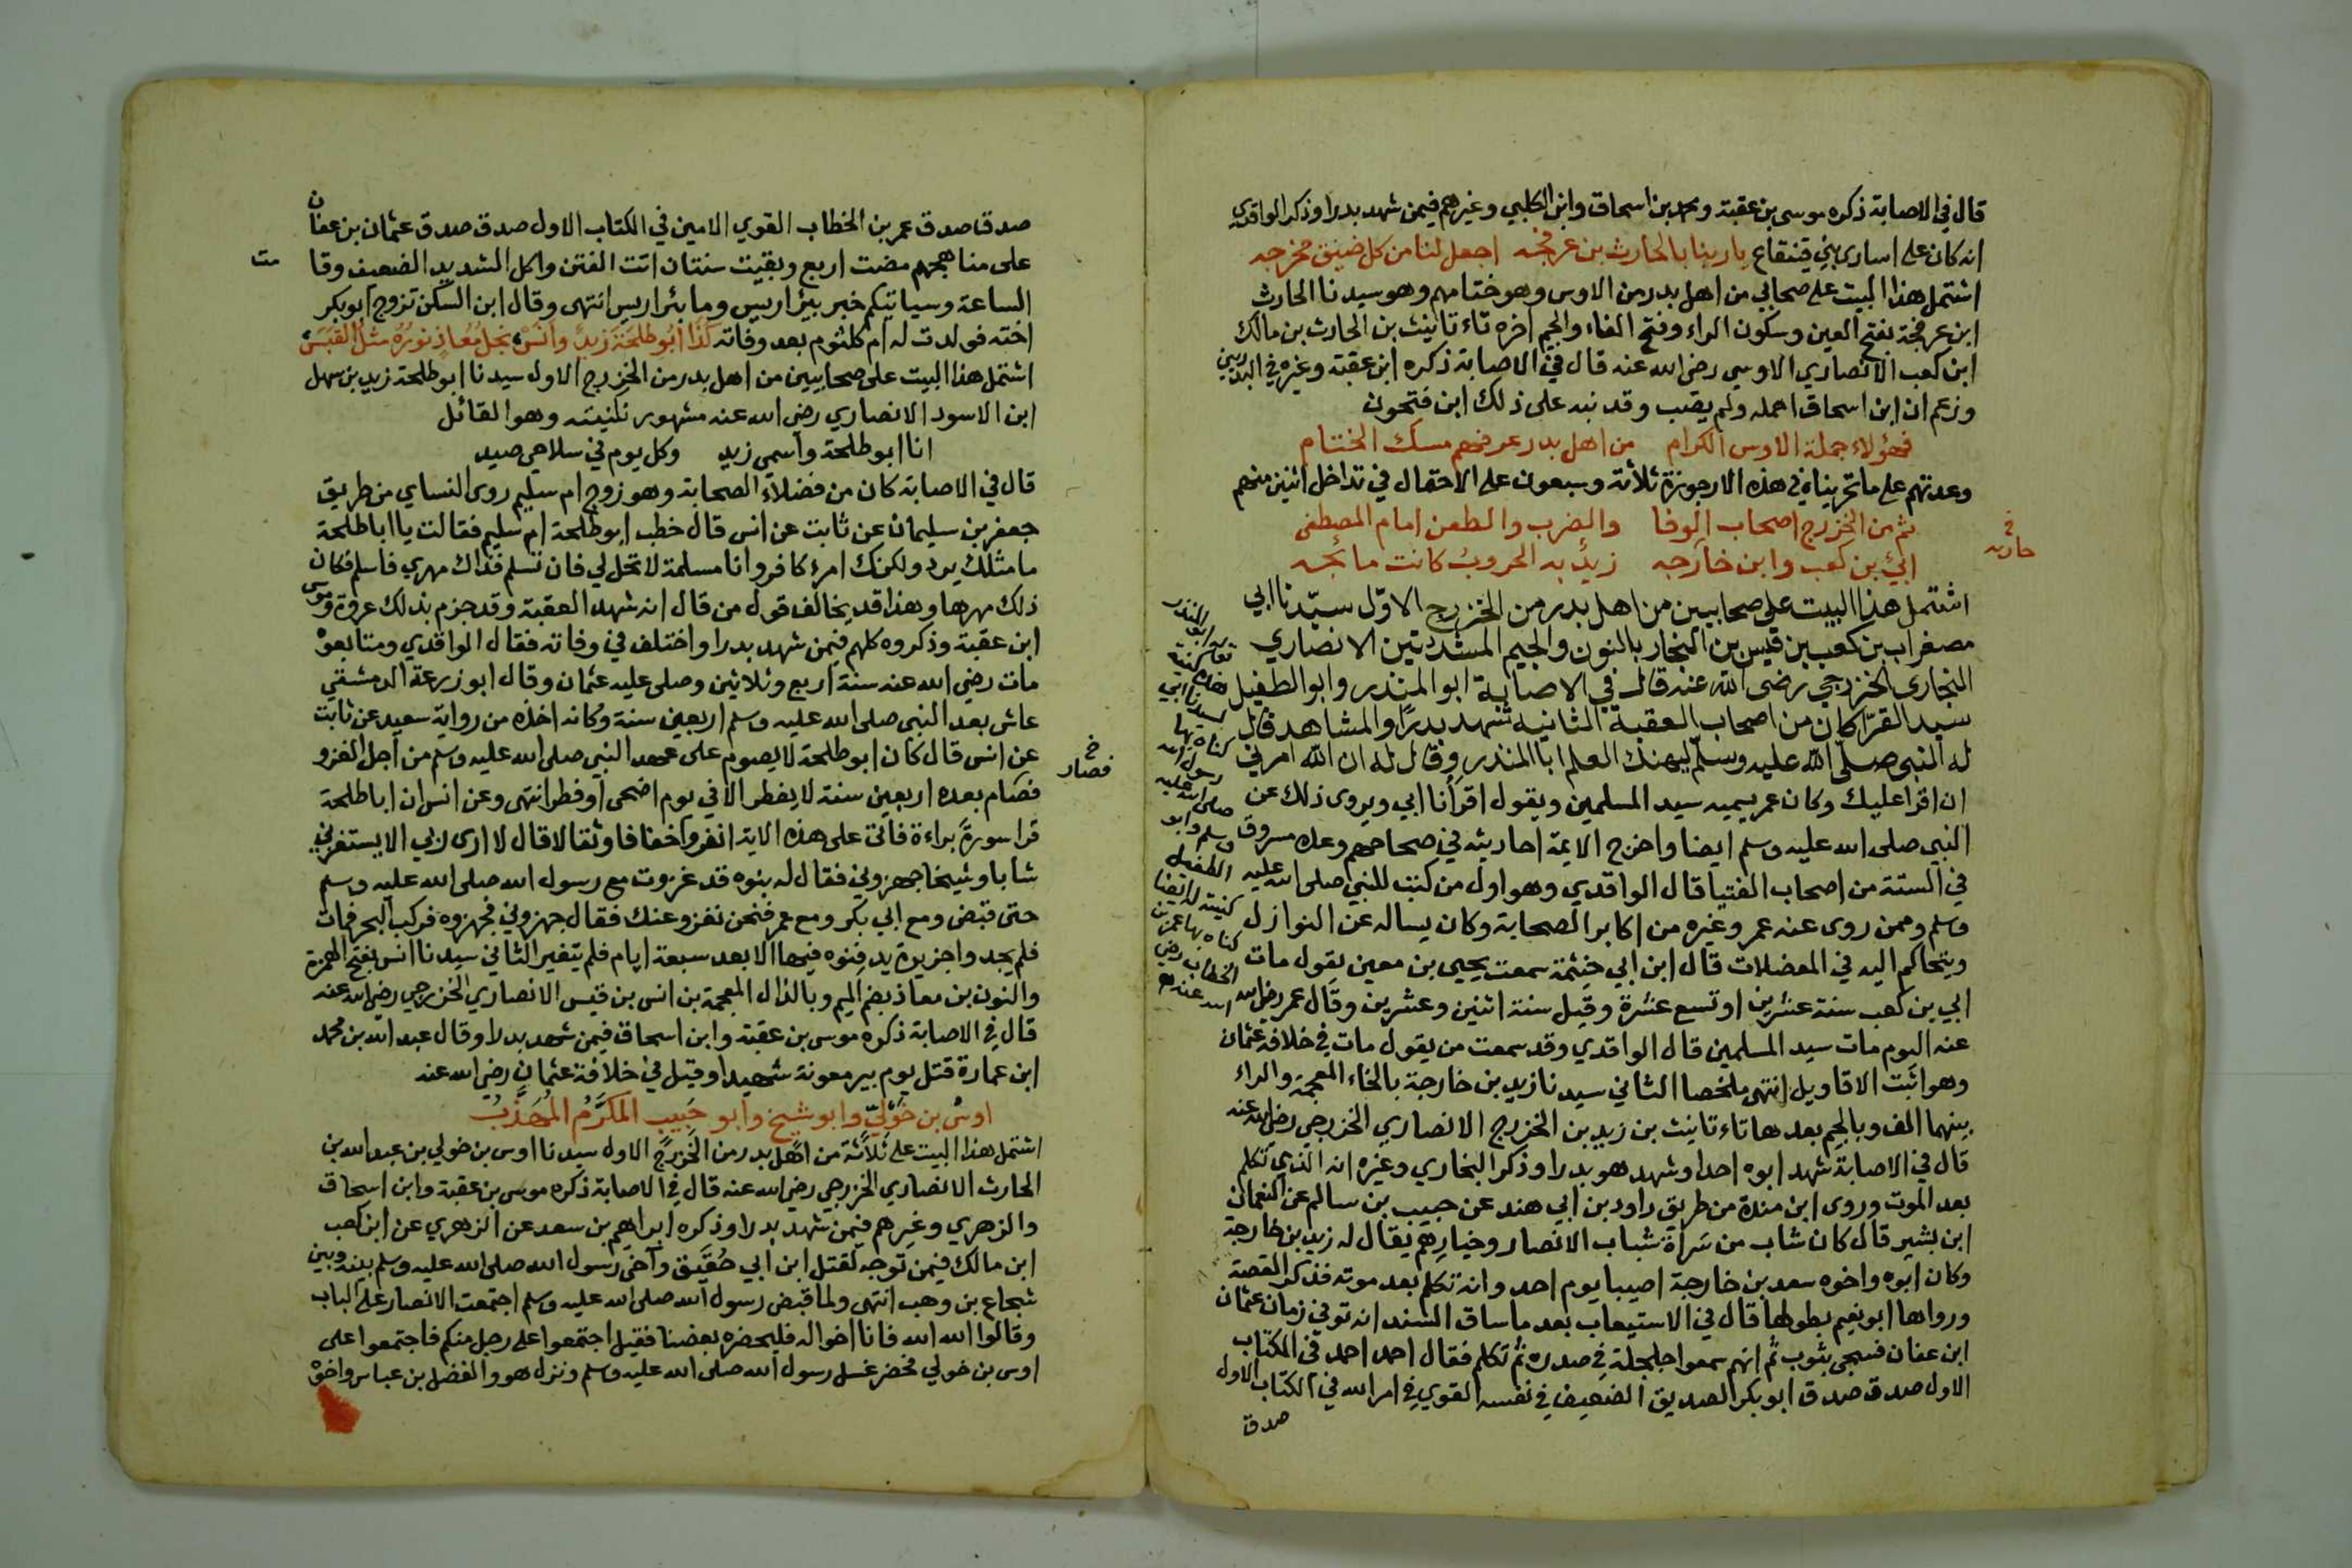 قال في الاصابة ذكره موسى بن عقبة ومحمد بن اسحاق وابن الكلبي وغيرهم فيمن شهد بدرا وذكر الواقدي
انه كان على اسارى بني قينقاع يا ربنا بالحارث بن عرفجه اجعل لنا من كل ضيق مخرجه
اشتمل هذا البيت على صحابي من اهل بدر من الاوس وهو ختامهم وهو سيدنا الحارث
ابن عرفجة بفتح العين وسكون الراء وفتح الفاء والجيم اخره تاء تانيث بن الحارث بن مالك
ابن كعب الانصاري الاوسي رضي الله عنه قال في الاصابة ذكره ابن عقبة وغيره في البدريين
وزعم ان ابن اسحاق اهمله ولم يصب وقد نبه على ذلك ابن فتحون
فهؤلاء جملة الاوس الكرام من اهل بدر عرفهم مسك الختام
وعدتهم على ما تحريناه في هذه الارجوزة ثلاثة وسبعون على الاحتمال في تداخل اثنين منهم
ثم من الخزرج اصحاب الوفا والضرب والطعن امام المصطفى
ابي بن كعب وابن خارجه زيد به الحروب كانت مائجه
خ
حارثه
اشتمل هذا البيت على صحابيين من اهل بدر من الخزرج الاول سيدنا ابي
مصغرا بن كعب بن قيس بن النجار بالنون والجيم المشددتين الانصاري
النجاري الخزرجي رضي الله عنه قال في الاصابة ابو المنذر وابو الطفيل
سيد القرا كان من اصحاب العقبة الثانيه شهد بدرا والمشاهد قال
له النبي صلى الله عليه وسلم ليهنك العلم ابا المنذر وقال له ان الله امرني
ان اقرا عليك وكان عمر يسميه سيد المسلمين ويقول اقرأنا ابي ويروى ذلك عن
النبي صلى الله عليه وسلم ايضا واخرج الايمة احاديثه في صحاحهم وعده مسروق
في الستة من اصحاب الفتيا قال الواقدي وهو اول من كتب للنبي صلى الله عليه
وسلم وممن روى عنه عمر وغيره من اكابر الصحابة وكان يساله عن النوازل
ويتحاكم اليه في المعضلات قال ابن ابي خيثمة سمعت يحيى بن معين يقول مات
ابي بن كعب سنة عشرين او تسع عشرة وقيل سنة اثنين وعشرين وقال عمر رضي الله
عنه اليوم مات سيد المسلمين قال الواقدي وقد سمعت من يقول مات في خلافة عثمان
وهو اثبت الاقاويل انتهى ملخصا الثاني سيدنا زيد بن خارجة بالخاء المعجمة والراء
بينهما الف وبالجيم بعدها تاء تانيث بن زيد بن الخزرج الانصاري الخزرجي رضي الله عنه
قال في الاصابة شهد ابوه احدا وشهد هو بدرا وذكر البخاري وغيره انه الذي تكلم
بعد الموت وروى ابن مندة من طريق داود بن ابي هند عن حبيب بن سالم عن النعمان
ابن بشير قال كان شاب من سراة شباب الانصار وخيارهم يقال له زيد بن خارجة
وكان ابوه واخوه سعد بن خارجة اصيبا يوم احد وانه تكلم بعد موته فذكر القصة
ورواها ابو نعيم بطولها قال في الاستيعاب بعد ما ساق السند انه توفي زمان عثمان
ابن عفان فسجي بثوب ثم انهم سمعوا جلجلة في صدره ثم تكلم فقال احمد احمد في الكتاب
الاول صدق صدق ابو بكر الصديق الضعيف في نفسه القوي في امر الله في الكتاب الاول
صدق
سيدنا ابي
كناه بها
رسول الله
صلى الله عليه
وسلم وابو
الطفيل
كنيته ايضا
كناه بها عمر بن
الخطاب رضي
الله عنهم
صدق صدق عمر بن الخطاب القوي الامين في الكتاب الاول صدق صدق عثمان بن عفان
على منا هجهم مضت اربع وبقيت سنتان اتت الفتن واكل الشديد الضعيف وقامت
الساعة وسياتيكم خبر بير اريس وما بئر اريس انتهى وقال ابن السكن تزوج ابو بكر
اخته فولدت له ام كلثوم بعد وفاته كذا ابو طلحة زيد وانس نجل معاذ نوره مثل القبس
اشتمل هذا البيت على صحابيين من اهل بدر من الخزرج الاول سيدنا ابو طلحة زيد بن سهل
ابن الاسود الانصاري رضي الله عنه مشهور بكنيته وهو القائل
انا ابو طلحة واسمي زيد وكل يوم في سلاحي صيد
قال في الاصابة كان من فضلاء الصحابة وهو زوج ام سليم روى النساي من طريق
جعفر بن سليمان عن ثابت عن انس قال خطب ابو طلحة ام سليم فقالت يا ابا طلحة
ما مثلك يرد ولكنك امرء كافر وانا مسلمة لا تحل لي فان تسلم فذاك مهري فاسلم فكان
ذلك مهرها وهذا قد يخالف قول من قال انه شهد العقبة وقد جزم بذلك عروة وموسى
ابن عقبة وذكروه كلهم فيمن شهد بدرا واختلف في وفاته فقال الواقدي ومتابعوه
مات رضي الله عنه سنة اربع وثلاثين وصلى عليه عثمان وقال ابو زرعة الدمشقي
عاش بعد النبي صلى الله عليه وسلم اربعين سنة وكانه اخذه من رواية سعيد عن ثابت
عن انس قال كان ابو طلحة لا يصوم على عهد النبي صلى الله عليه وسلم من اجل الغزو
خ
فصار
فصام بعده اربعين سنة لا يفطر الا في يوم اضحى او فطر انتهى وعن انس ان ابا طلحة
قرا سورة براءة فاتى على هذه الاية انفروا خفافا وثقالا قال لا ارى ربي الا يستفزني
شابا وشيخا جهزوني فقال له بنوه قد غزوت مع رسول الله صلى الله عليه وسلم
حتى قبض ومع ابي بكر ومع عمر فنحن نغزو عنك فقال جهزوني فجهزوه فركب البحر فمات
فلم يجدوا جزيرة يدفنوه فيها الا بعد سبعة ايام فلم يتغير الثاني سيدنا انس بفتح الهمزة
والنون بن معاذ بضم الميم وبالذال المعجمة بن انس بن قيس الانصاري الخزرجي رضي الله عنه
قال في الاصابة ذكره موسى بن عقبة وابن اسحاق فيمن شهد بدرا وقال عبد الله بن محمد
ابن عمارة قتل يوم بير معونة شهيدا وقيل في خلافة عثمان رضي الله عنه
اوس بن خولي وابو شيخ وابو حبيب المكرم المهذب
اشتمل هذا البيت على ثلاثة من اهل بدر من الخزرج الاول سيدنا اوس بن خولي بن عبد الله بن
الحارث الانصاري الخزرجي رضي الله عنه قال في الاصابة ذكره موسى بن عقبة وابن اسحاق
والزهري وغيرهم فيمن شهد بدرا وذكره ابراهيم بن سعد عن الزهري عن ابن كعب
ابن مالك فيمن توجه لقتل ابن ابي حقيق وآخى رسول الله صلى الله عليه وسلم بينه وبين
شجاع بن وهب انتهى ولما قبض رسول الله صلى الله عليه وسلم اجتمعت الانصار على الباب
وقالوا الله الله فانا اخواله فليحضره بعضنا فقيل اجتمعوا على رجل منكم فاجتمعوا على
اوس بن خولي فحضر غسل رسول الله صلى الله عليه وسلم ونزل هو والفضل بن عباس واخوه